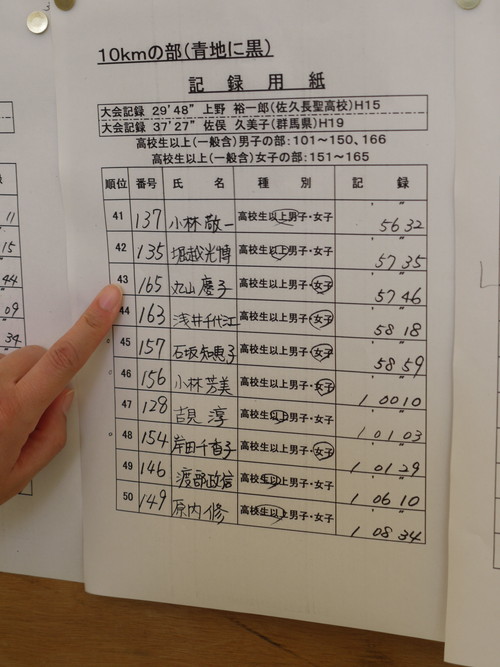 10kmの部(青地に黒)
記録用紙
大会記録 29'48" 上野 裕一郎(佐久長聖高校)H15
大会記録 37'27" 佐俣 久美子(群馬県)H19
高校生以上(一般含)男子の部:101~150、166
高校生以上(一般含)女子の部:151~165
順位 番号 氏 名 種 別 記 録
41 137 小林 敬一 高校生以上男子・女子 56 32
42 135 堀越光博 高校生以上男子・女子 57 35
43 165 丸山慶子 高校生以上男子・女子 57 46
44 163 浅井千代江 高校生以上男子・女子 58 18
45 157 石坂知恵子 高校生以上男子・女子 58 59
46 156 小林芳美 高校生以上男子・女子 1 00 10
47 128 吉見 淳 高校生以上男子・女子 1 01 03
48 154 岸田千香子 高校生以上男子・女子 1 01 29
49 146 渡部政信 高校生以上男子・女子 1 06 10
50 149 原内 修 高校生以上男子・女子 1 08 34
11
15
44
09
34